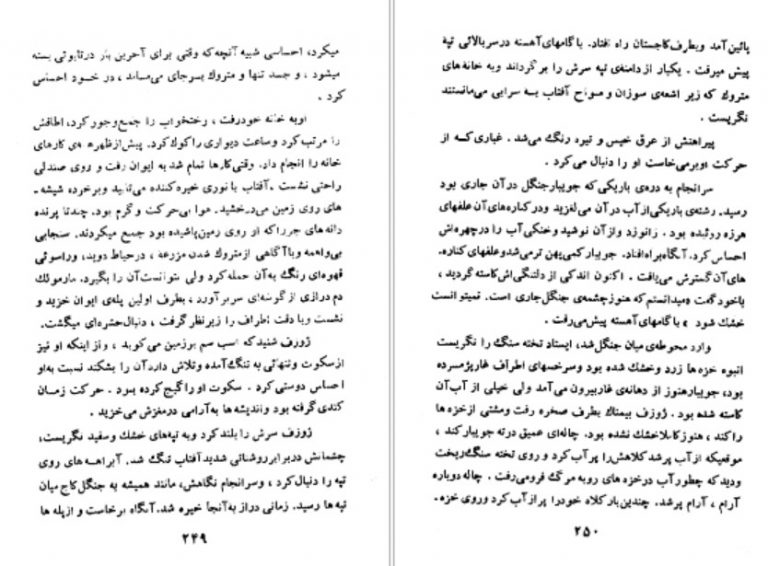 میکرد، احساسی شبیه آنچه که وقتی برای آخرین بار درتابوتی بسته
میشود ، و جسد تنها و متروک برجای می‌ماند ، در خود احساس
کرد .
اوبه خانه خودرفت ، رختخواب را جمع‌وجور کرد، اطاقش
را مرتب کرد وساعت دیواری راکوک کرد. پیش‌ازظهر همه‌ی کارهای
خانه را انجام داد. وقتی کارها تمام شد به ایوان رفت و روی صندلی
راحتی نشست . آفتاب با نوری خیره کننده می‌تابید وبرخرده شیشه-
های روی زمین می‌درخشید. هوا بی‌حرکت و گرم بود. چندتا پرنده
دانه های جورا که او روی زمین‌پاشیده بود جمع میکردند. سنجابی
بی‌واهمه وباآگاهی ازمتروک شدن مزرعه ، درحیاط دوید، وراسوئی
قهوه‌ای رنگ به‌آن حمله کرد ولی نتوانست‌آن را بگیرد. مارمولک
دم درازی از گوشه‌ای سربرآورد ، بطرف اولین پله‌ی ایوان خزید و
نشست وبا دقت اطراف را زیرنظر گرفت ، دنبال حشره‌ای میگشت.
ژوزف شنید که اسب سم برزمین می‌کوبد ، و از اینکه او نیز
از سکوت و تنهائی به تنگ‌آمده وتلاش دارد آن را بشکند نسبت به‌او
احساس دوستی کرد . سکوت او را گیج کرده بود . حرکت زمان
کندی گرفته بود و اندیشه ها به‌آرامی درمغزش می‌خزید .
ژوزف سرش را بلند کرد وبه تپه‌های خشک وسفید نگریست،
چشمانش دربرابر روشنائی شدید آفتاب تنگ شد. آبراهه‌های روی
تپه را دنبال کرد ، وسرانجام نگاهش، مانند همیشه به جنگل کاج میان
تپه ها رسید. زمانی دراز به‌آنجا خیره شد.آنگاه برخاست و از پله ها
۲۴۹
پائین آمد وبطرف کاجستان راه افتاد. با گامهای آهسته در سربالائی تپه
پیش میرفت . یکبار از دامنه‌ی تپه سرش را بر گرداند وبه خانه‌های
متروک که زیر اشعه‌ی سوزان و مواج آفتاب به سرابی می‌مانستند
نگریست .
پیراهنش از عرق خیس و تیره رنگ می‌شد. غباری که از
حرکت اوبرمی‌خاست او را دنبال می‌کرد .
سرانجام به دره‌ی باریکی که جویبار جنگل در آن جاری بود
رسید. رشته‌ی باریکی از آب در آن می‌لغزید ودر کناره‌های آن علفهای
هرزه روئیده بود . زانوزد واز آن نوشید وخنکی آب را درچهره‌اش
احساس کرد. آنگاه براه‌افتاد. جویبار کمی پهن تر می‌شد وعلفهای کناره.
های‌آن گسترش می‌یافت . اکنون اندکی از دلتنگی‌اش کاسته گردید ،
باخود گفت «میدانستم که هنوز چشمه‌ی جنگل جاری است. نمیتوانست
خشک شود » با گامهای آهسته پیش می‌رفت .
وارد محوطه‌ی میان جنگل شد، ایستاد تخته سنگ را نگریست
انبوه خزه ها زرد وخشک شده بود وسرخسهای اطراف غار پژمرده
بود، جویبار هنوز از دهانه‌ی غار بیرون می‌آمد ولی خیلی از آب آن
کاسته شده بود . ژوزف بیمناک بطرف صخره رفت ومشتی از خزه ها
را کند ، هنوز کاملا خشک نشده بود. چاله‌ای عمیق در ته جویبار کند ،
موقعیکه از آب پر شد کلاهش را پر آب کرد و روی تخته سنگ ریخت
ودید که چطور آب درخزه های رو به مرگ فرومی‌رفت . چاله دوباره
آرام ، آرام پر شد. چندین بار کلاه خودرا پر از آب کرد و روی خزه.
۲۵۰